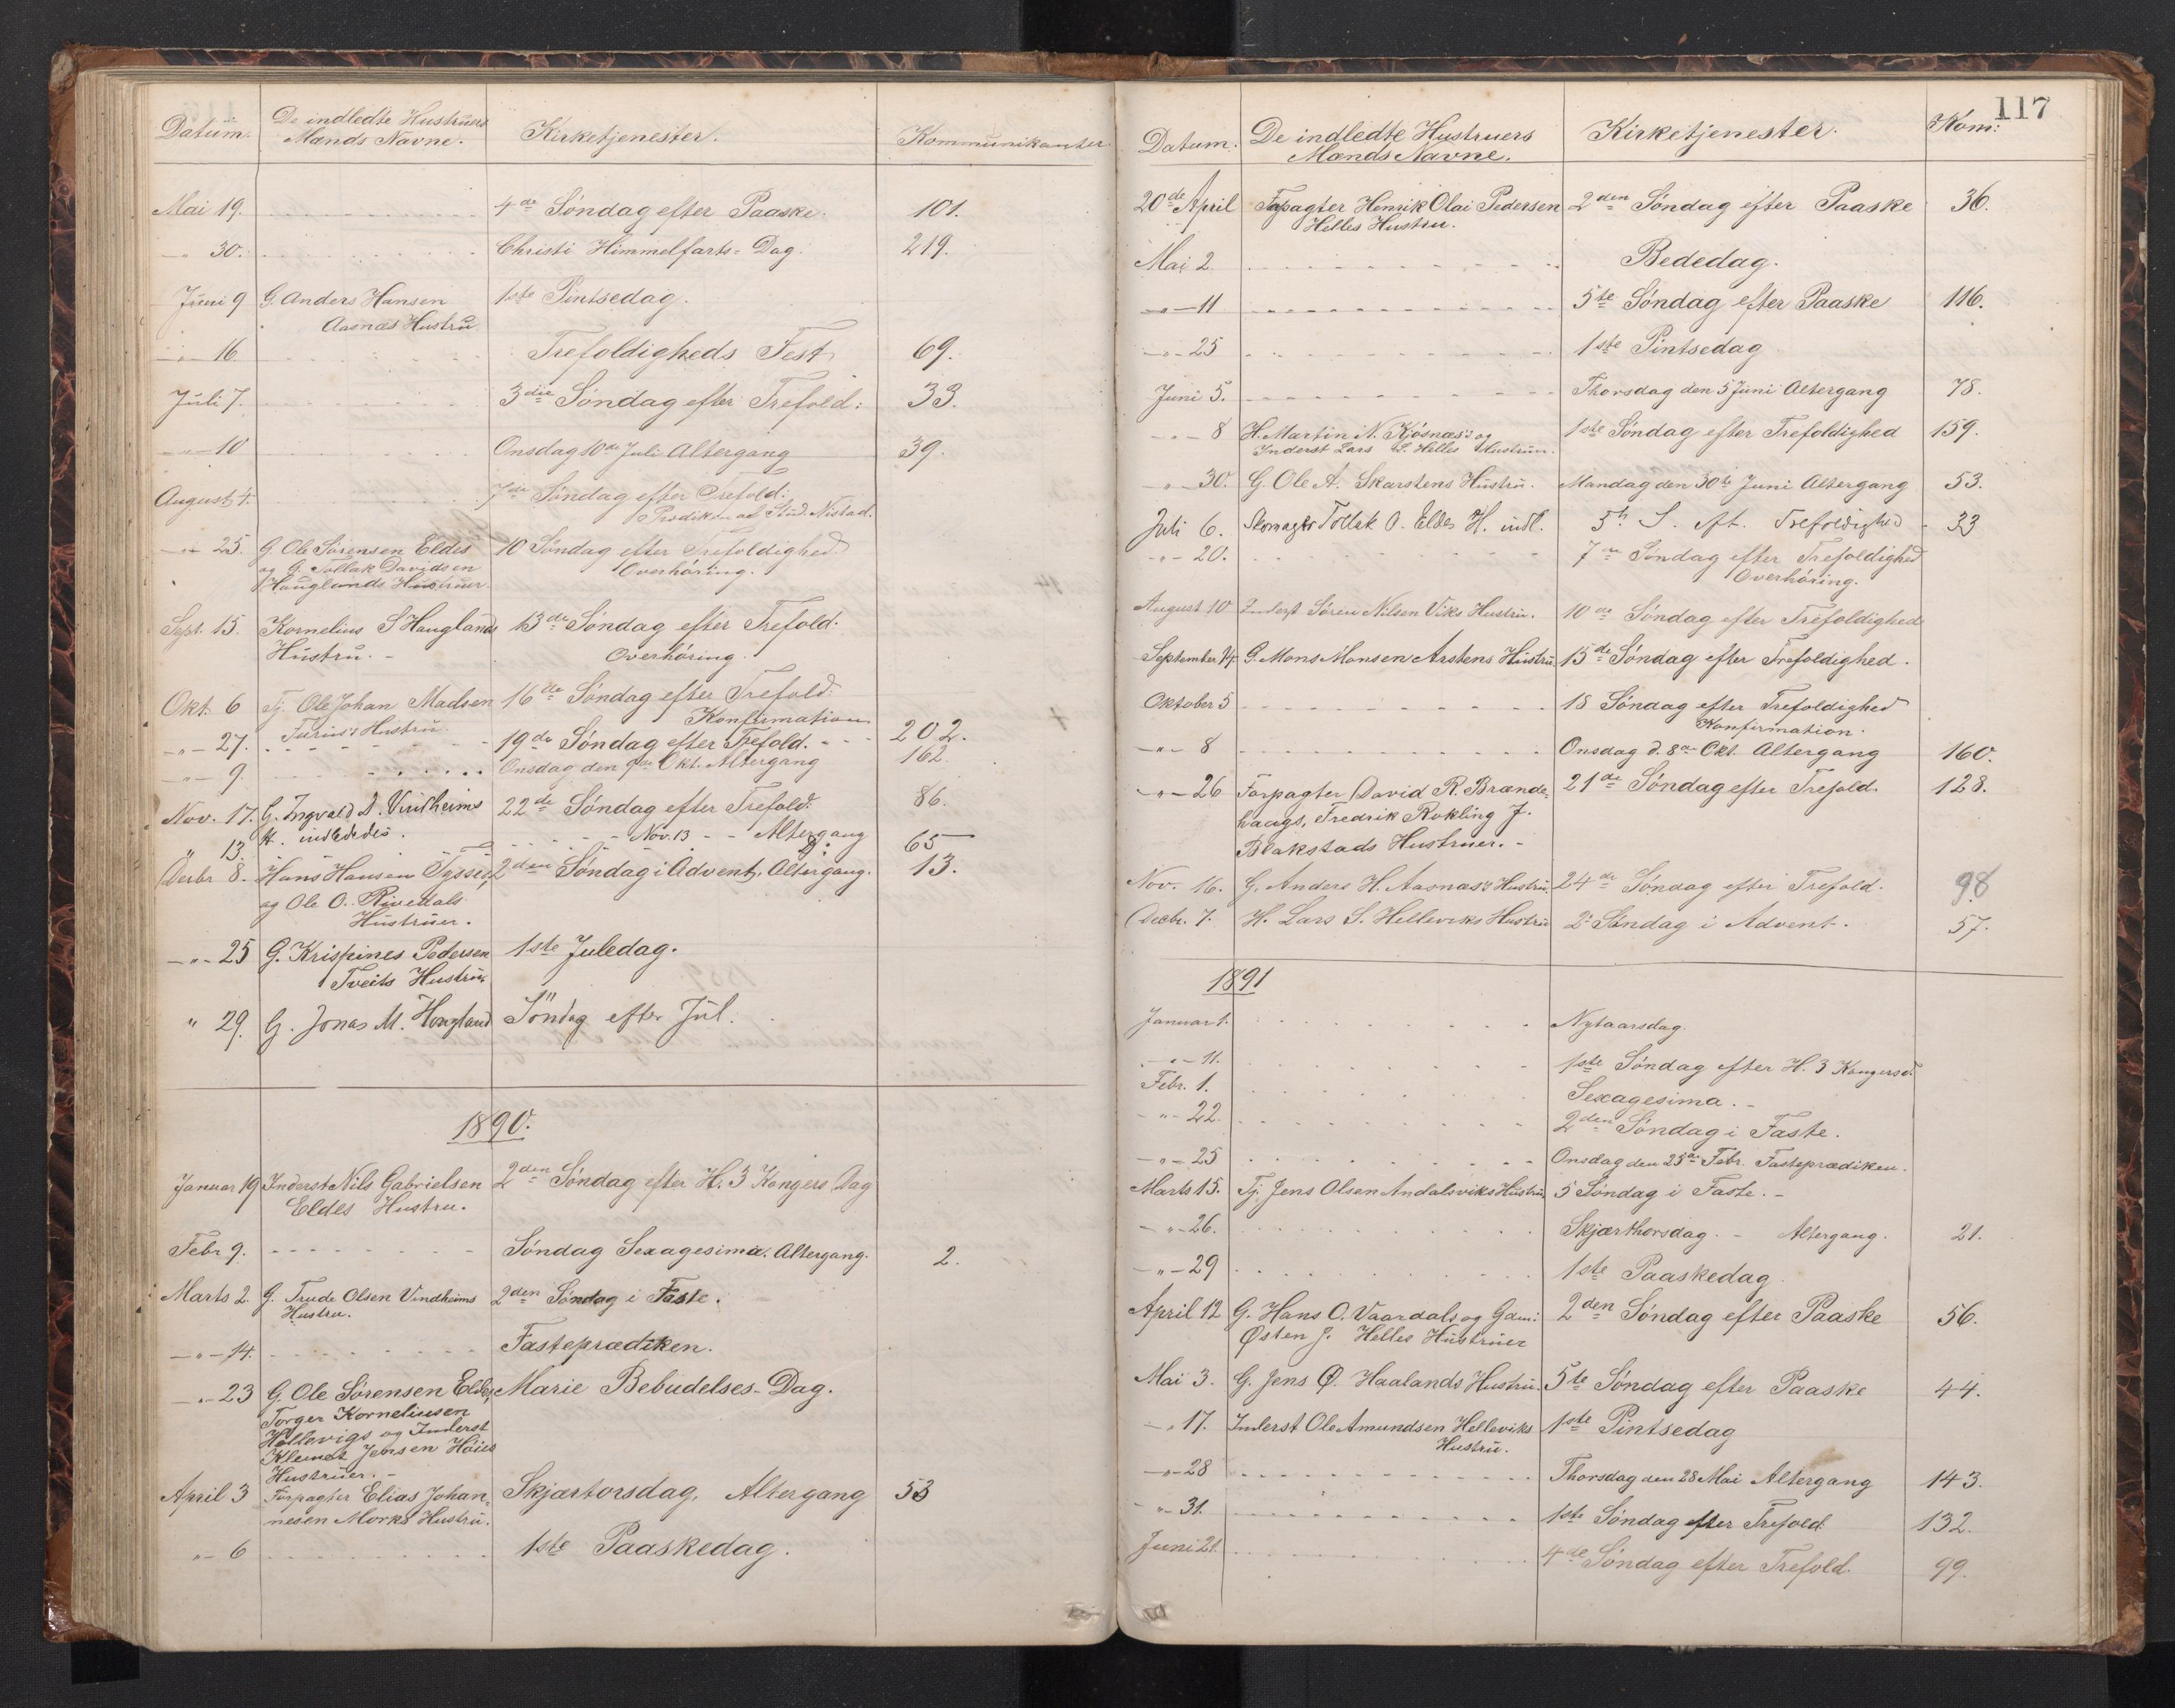 Datum. De indledte Hustruers Kirketjenester. Kommunikanter
Mænds Navne.
Mai 19. 4de Söndag efter Paaske. 101.
-"- 30. Christi Himmelfarts-Dag. 219.
Juni 9 G. Anders Hansen 1ste Pintsedag.
Aasnæs Hustru
-"- 16. Trefoldigheds Fest 69.
Juli 7. 3die Söndag efter Trefold: 33.
-"- 10 Onsdag 10de Juli Altergang 39.
August 4. 7de Söndag efter Trefold:
Prædiken af Stud. Nistad.
-"- 25. G. Ole Sörensen Eldes 10 Söndag efter Trefoldighed
og G. Tollak Davidsen Overhöring.
Hauglands Hustruer.
Sept. 15. Kornelius S Hauglands 13de Söndag efter Trefold:
Hustru. - Overhöring.
Okt. 6 Tj. Ole Johan Madsen 16de Söndag efter Trefold:
Hustru Konfirmation
-"- 27. 19de Söndag efter Trefold. 202.
-"- 9. Onsdag den 9de Okt. Altergang 162.
Nov. 17. G. Ingvald D. Vindheims 22de Söndag efter Trefold: 86.
H. indlededes.
" 13. Nov. 13 - - Altergang 65
Decbr 8. Hans Hansen Tysses, 2den Söndag i Advent, Altergang. 13.
og Ole O. Rivedals
Hustruer.
-"- 25 G. Krispines Pedersen 1ste Juledag.
Tveits Hustru.
" 29. G. Jonas M. Hougland Söndag efter Jul.
1890.
Januar 19 Inderst Nils Gabrielsen 2den Söndag efter H. 3 Kongers Dag
Eldes Hustru.
Febr 9. Söndag Sexagesima. Altergang. 2.
Marts 2. G. Trude Olsen Vindheims 2den Söndag i Faste.
Hustru.
-"- 14. Fasteprædiken.
-"- 23 G. Ole Sörensen Eldes, Marie Bebudelses-Dag.
Torger Korneliusen
Hellevigs og Inderst
Klemet Jensen Höies
Hustruer. -
April 3 Forpagter Elias Johan- Skjærtorsdag, Altergang 53
nesen Morks Hustru.
"- 6 1ste Paaskedag.
117
Datum. De indledte Hustruers Kirketjenester. Kom:
Mænds Navne.
20de April Fopagter Henrik Olai Pedersen 2den Söndag efter Paaske 36.
Helles Hustru.
Mai 2. Bededag.
-"- 11 5te Söndag efter Paaske 116.
-"- 25 1ste Pintsedag
Juni 5. Thorsdag den 5 Juni Altergang 78.
-"- 8 H. Martin N. Kjösnæs's og 1ste Söndag efter Trefoldighed 159.
Inderst Lars S. Helles Hustruer.
-"- 30. G. Ole A. Skarstens Hustru. Mandag den 30te Juni Altergang 53.
Juli 6. Skomager Tollak O. Eldes H. indl. 5te S. eft. Trefoldighed 33
-"- 20. 7de Söndag efter Trefoldighed
Overhöring.
August 10 Inderst Sören Nilsen Viks Hustru. 10de Söndag efter Trefoldighed
September 14. G. Mons Monsen Arstens Hustru 15de Söndag efter Trefoldighed.
Oktober 5 18 Söndag efter Trefoldighed
Konfirmation.
-"- 8 Onsdag d. 8de Okt. Altergang 160.
-"- 26 Forpagter David R. Brande- 21de Söndag efter Trefold. 128.
haugs, Fredrik Rokling J.
Blakstads Hustruer. -
Nov. 16. G. Anders H. Aasnæs's Hustru 24de Söndag efter Trefold. 98
Decbr. 7. H. Lars S. Helleviks Hustru 2. Söndag i Advent. 57.
1891
Januar 1. Nytaarsdag.
-"- 11. 1ste Söndag efter H. 3 Kongersd.
Febr. 1. Sexagesima. -
-"- 22. 2den Söndag i Faste.
-"- 25 Onsdag den 25de Febr. Fasteprædiken.
Marts 15. Tj. Jens Olsen Andalsviks Hustru 5 Söndag i Faste. -
-"- 26. Skjærthorsdag. - Altergang. 21.
-"- 29 1ste Paaskedag
April 12 G. Hans O. Vaardals og Gdm: 2den Söndag efter Paaske 56.
Østen J. Helles Hustruer
Mai 3. G. Jens Ø. Haalands Hustru. 5te Söndag efter Paaske 44.
-"- 17. Inderst Ole Amundsen Helleviks 1ste Pintsedag
Hustru.
-"- 28 Thorsdag den 28 Mai Altergang 143.
-"- 31. 1ste Söndag efter Trefold: 132.
Juni 21. 4de Söndag efter Trefold. 99.